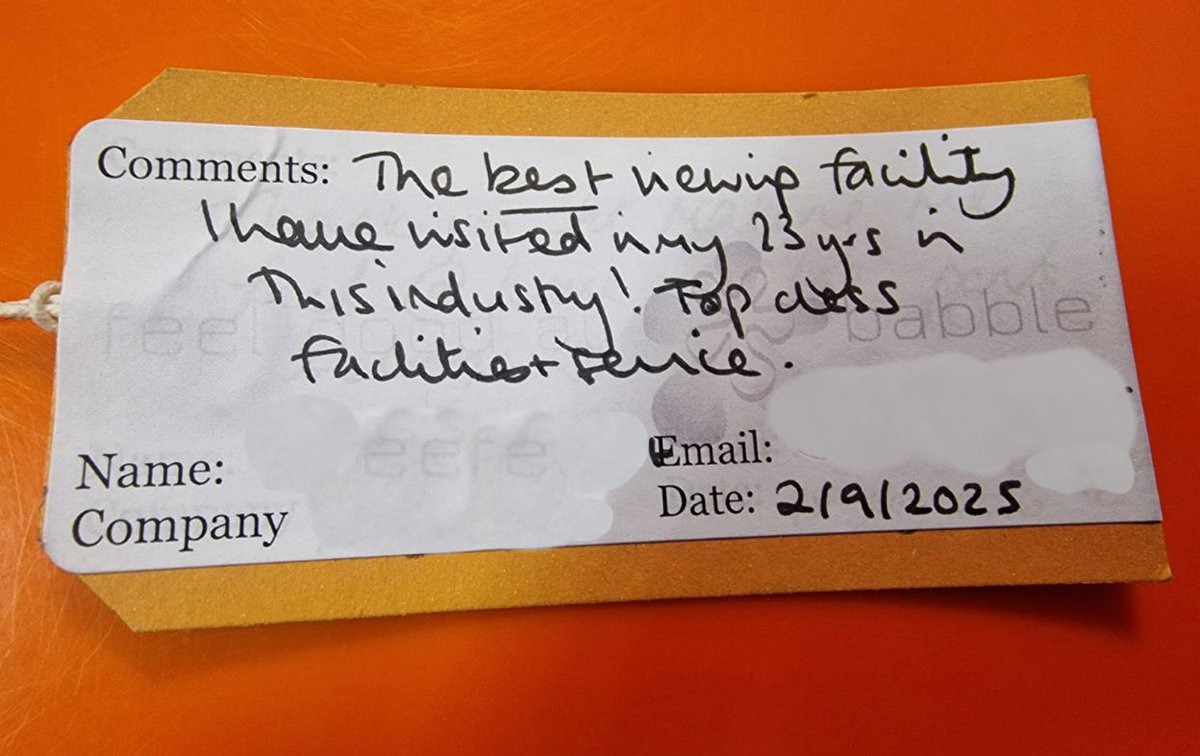 Comments: The best viewing facility
I have visited in my 23 yrs in
This industry! Top class
facilities + service.
feel babble
Name:
Company
Email:
Date: 2/9/2025